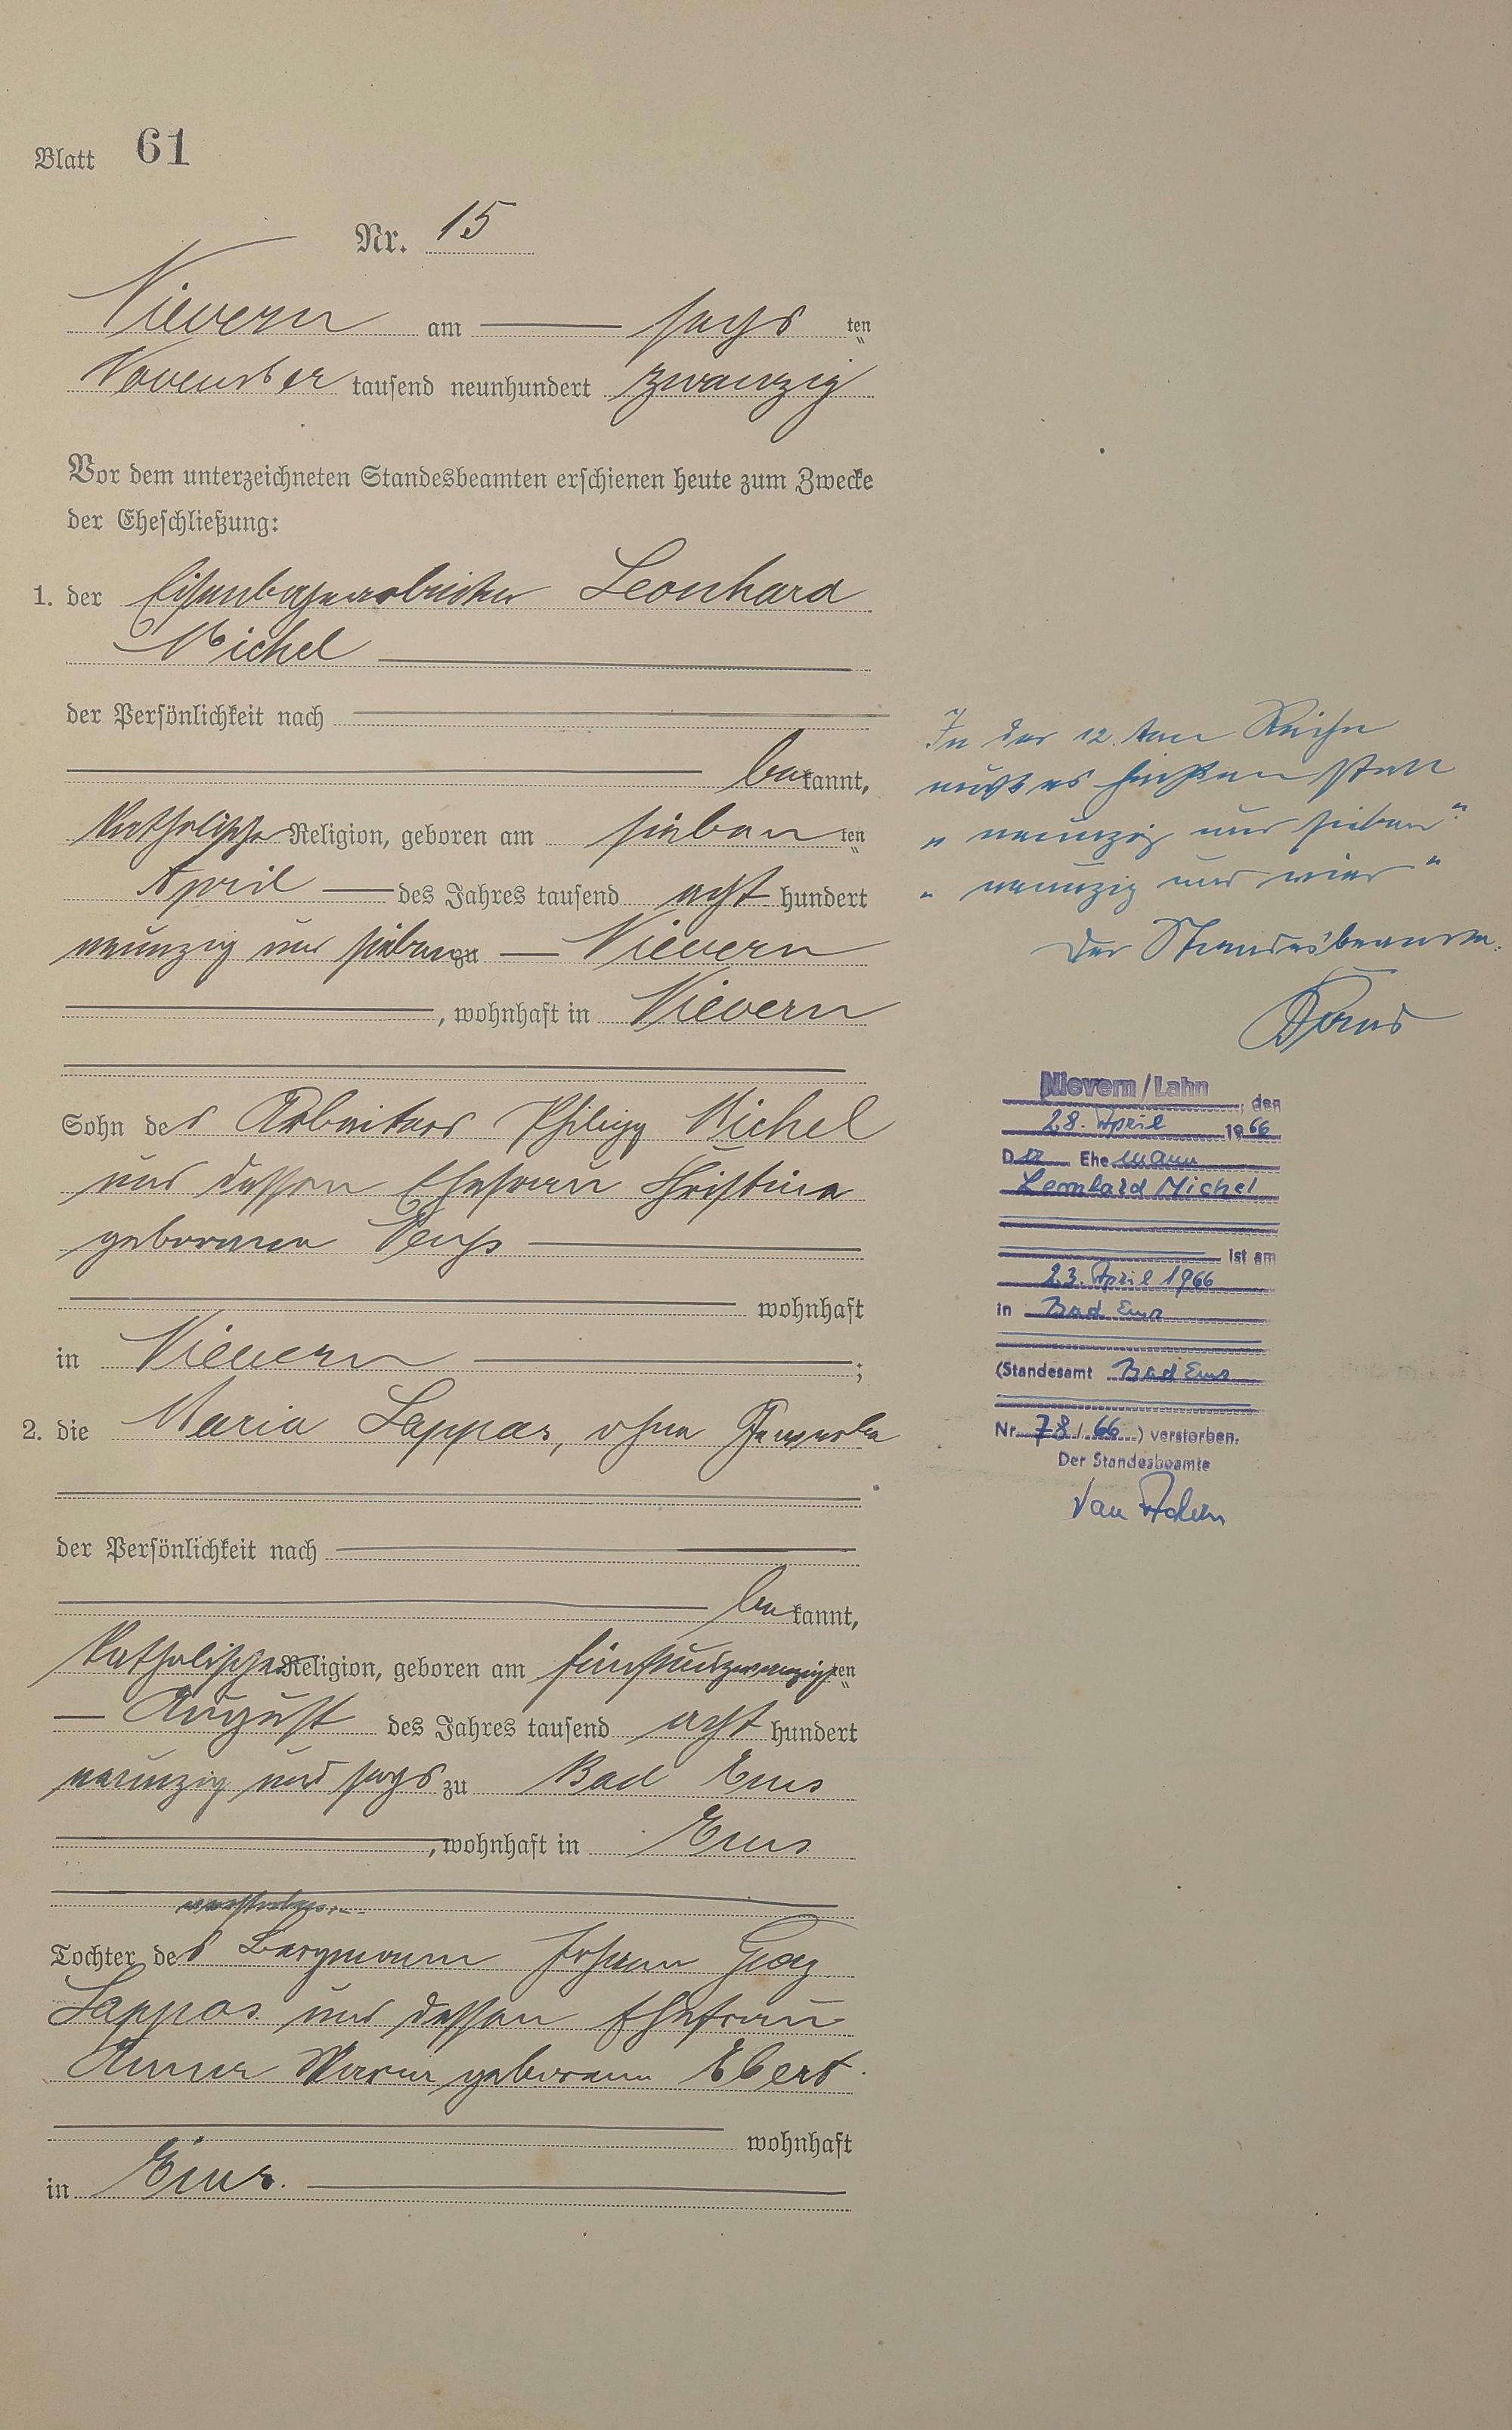 Blatt 61
Nr. 15
Nievern am sechs ten
November tausend neunhundert zwanzig
Vor dem unterzeichneten Standesbeamten erschienen heute zum Zwecke
der Eheschließung:
1. der Eisenbahnarbeiter Leonhard
Michel
der Persönlichkeit nach
bekannt,
katholischer Religion, geboren am sieben ten
April des Jahres tausend acht hundert
neunzig und sieben zu Nievern
, wohnhaft in Nievern
Sohn des Arbeiters Philipp Michel
und dessen Ehefrau Christina
geborenen
wohnhaft
in Nievern ;
2. die Maria Lappas, ohne Gewerbe
der Persönlichkeit nach
bekannt,
katholischer Religion, geboren am fünfundzwanzigsten
August des Jahres tausend acht hundert
neunzig und sechs zu Bad Ems
, wohnhaft in Ems
verstorbenen
Tochter des Bergmann Johann Georg
Lappas und dessen Ehefrau
Anna Maria geborene Ebert
wohnhaft
in Ems.
In der 12. ten Reihe
muß es heißen statt
„ neunzig und sieben “
„ neunzig und vier “
Der Standesbeamte:
Nievern/Lahn, den
28. April 1966
Der Ehemann
Leonhard Michel
ist am
23. April 1966
in Bad Ems
(Standesamt Bad Ems
Nr. 78/66) verstorben.
Der Standesbeamte